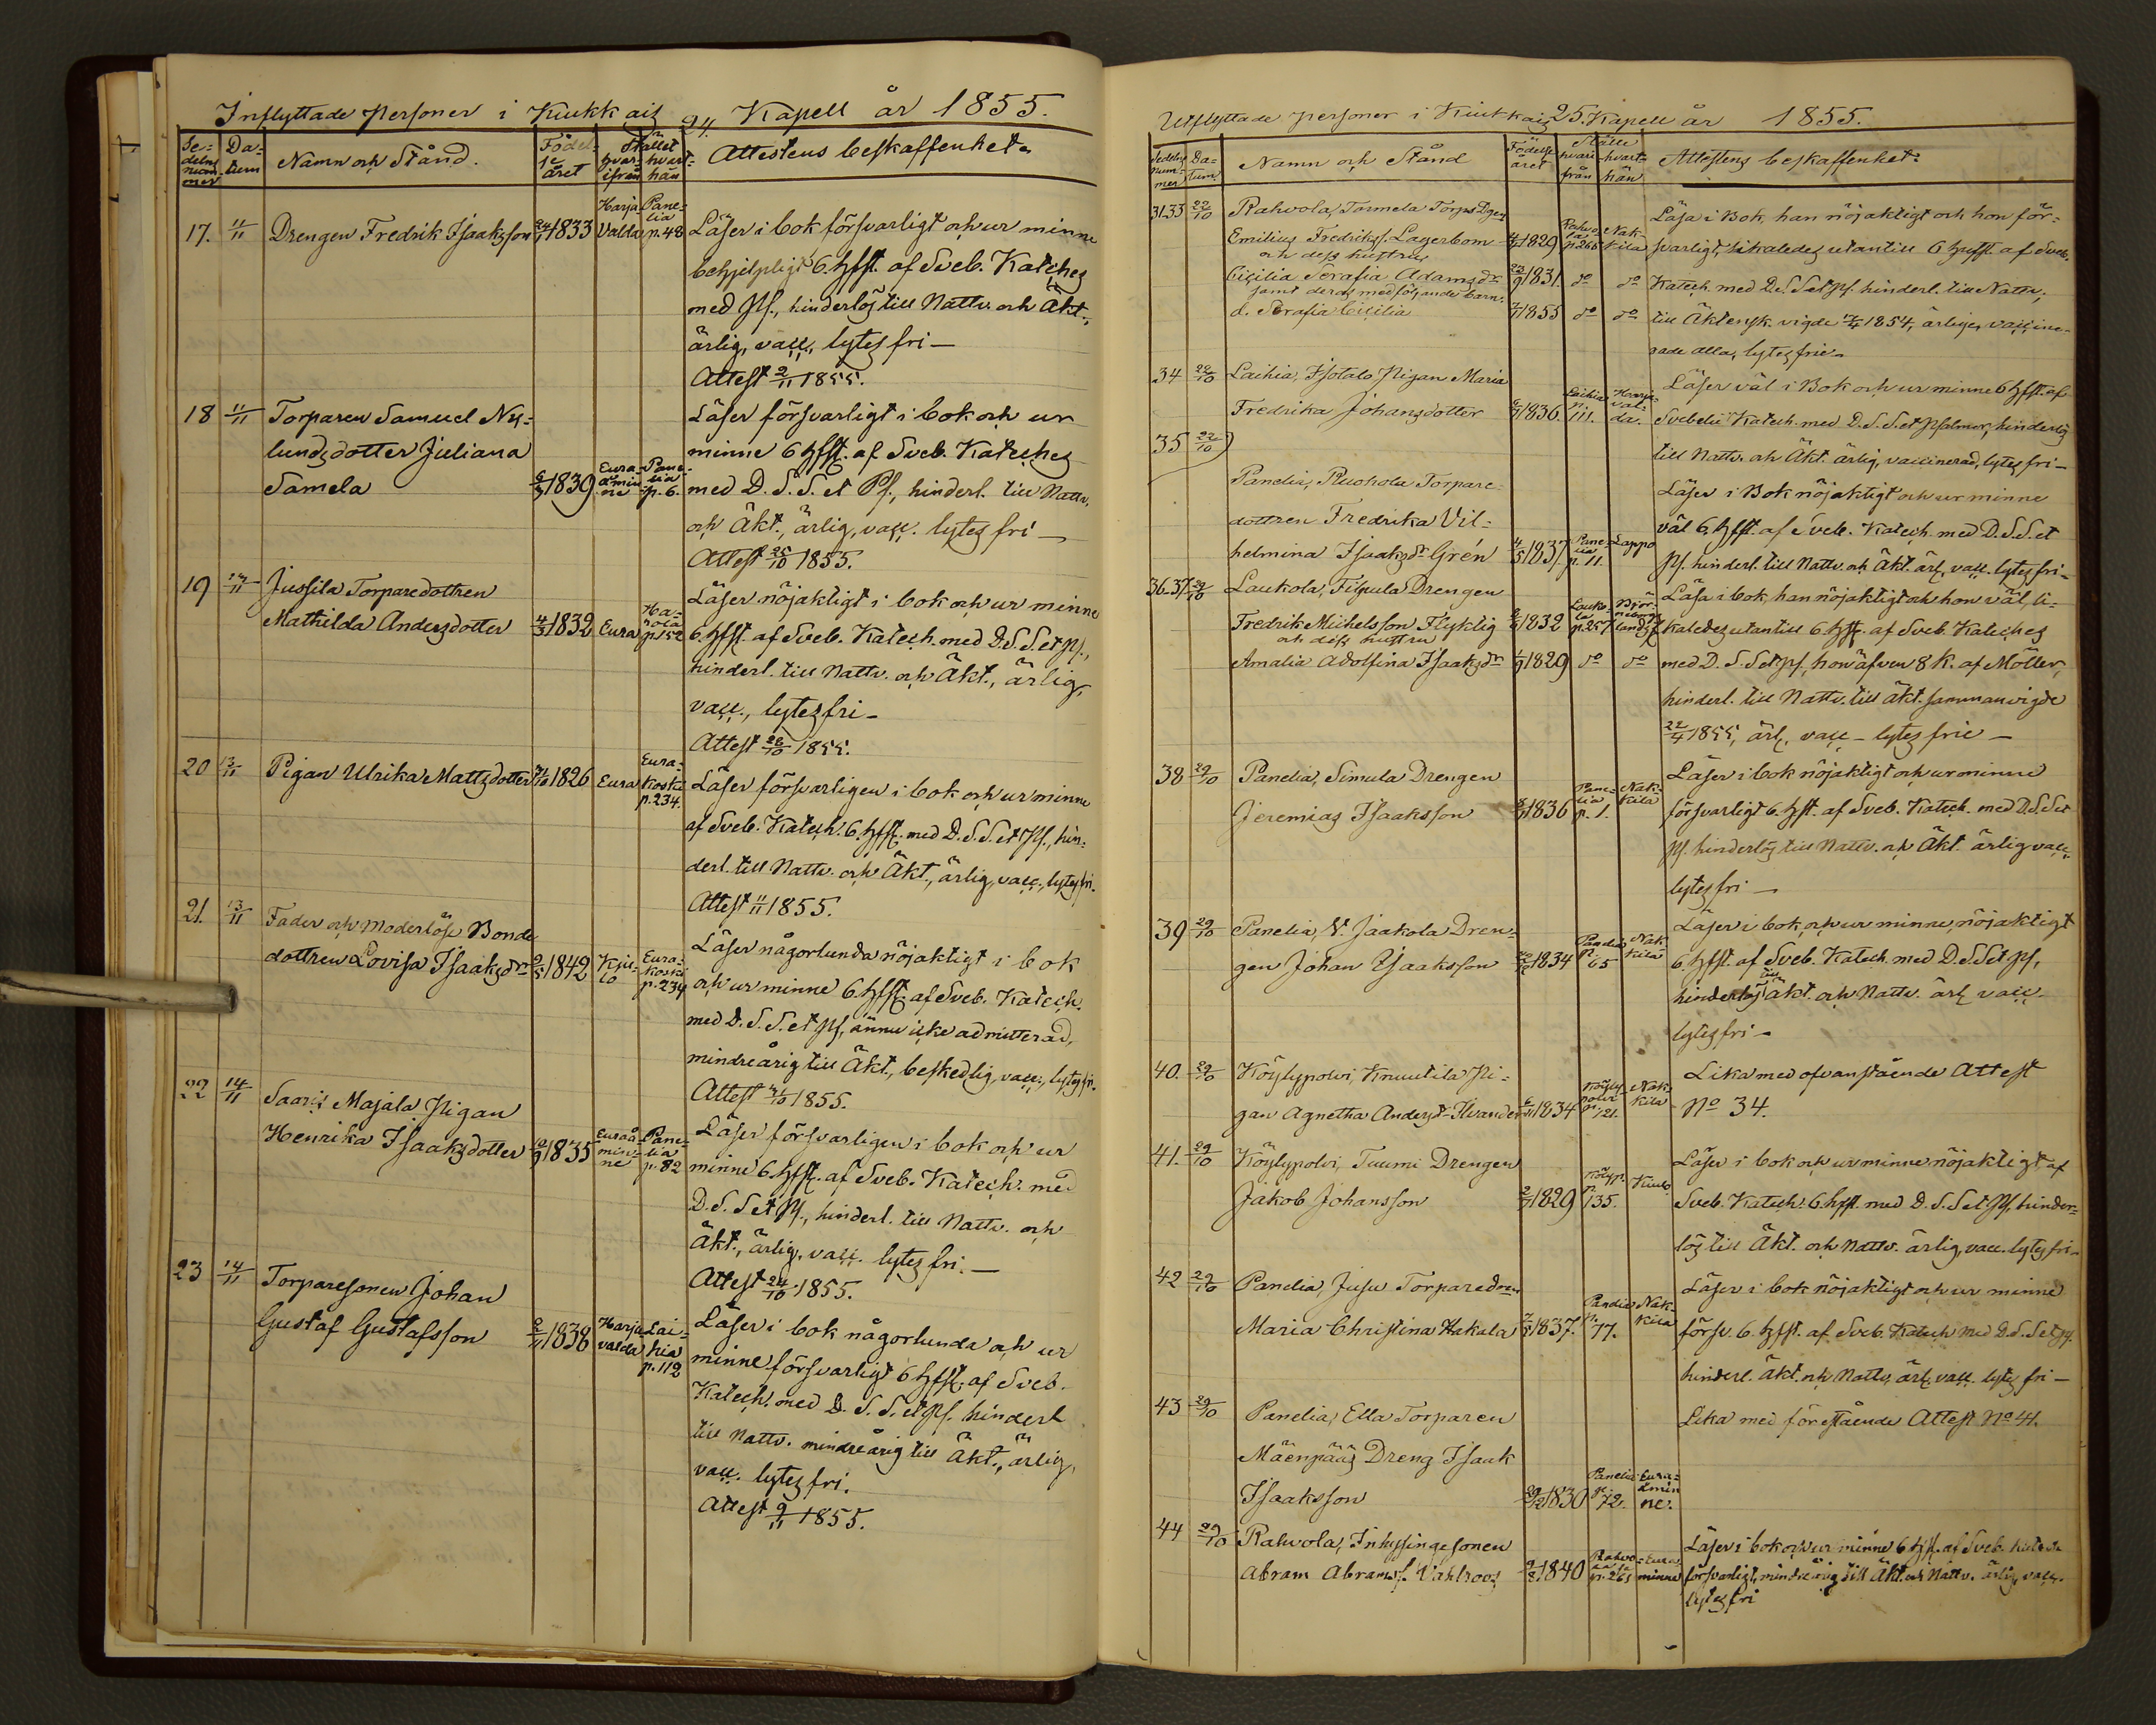 Inflyttade Personer i Kiukkais 24. Kapell år 1855.
Sedelns nummer Datum Namn och Stånd. Födelse året Stället hvarifrån hvarthän Attestens beskaffenhet.
17. 11/11 Drengen Fredrik Isaaksson 24/1 1833 Harjavalda Panelia p. 48 Läser i bok försvarligt och ur minne
behjelpligt 6. hfst. af Sveb. Kateches
med Ps., hinderlös till Nattv. och Äkt.,
ärlig, vacc., lytes fri —
Attest 2/11 1855.
18 11/11 Torparen Samuel Ny-
lunds dotter Juliana
Samela 6/3 1839 Euraåminne Panelia p. 6.
Läser försvarligt i bok och ur
minne 6 hfst. af Sveb. Kateches
med D. S. S. et Ps., hinderl. till Nattv.
och Äkt., ärlig, vacc. lytes fri —
Attest 25/10 1855.
19 12/11 Jussila Torparedottren
Mathilda Andersdotter 4/3 1832 Eura Harola p. 152
Läser nöjaktigt i bok och ur minne
6 hfst. af Sveb. Katech. med D. S. S. et Ps.,
hinderl. till Nattv. och Äkt., ärlig,
vacc., lytes fri —
Attest 28/10 1855.
20 13/11 Pigan Ulrika Mattsdotter 31/10 1826 Eura Eurakoski p. 234.
Läser försvarligen i bok och ur minne
af Sveb. Katech. 6. hfst. med D. S. S. et Ps., hin-
derl. till Nattv. och Äkt., ärlig, vacc., lytes fri.
Attest 11/11 1855.
21. 13/11 Fader och Moderlösa Bonde
dottren Lovisa Isaaksdr 2/5 1842 Kjulo Eurakoski p. 234
Läser någorlunda nöjaktigt i bok
och ur minne 6. hfst. af Sveb. Katech.
med D. S. S. et Ps, ännu icke admitterad,
mindreårig till Äkt., beskedlig, vacc., lytes fri.
Attest 31/10 1855.
22 14/11 Saaris Majala Pigan
Henrika Isaaksdotter 12/9 1835 Euraåminne Panelia p. 82
Läser försvarligen i bok och ur
minne 6. hfst. af Sveb. Katech. med
D. S. S et Ps., hinderl. till Nattv. och
Äkt., ärlig, vacc. lytes fri. —
Attest 24/10 1855.
23 14/11 Torparesonen Johan
Gustaf Gustafsson 2/11 1838 Harjavalda Laihia p. 112
Läser i bok någorlunda och ur
minne försvarligt 6 hfst. af Sveb.
Katech. med D. S. S. et Ps. hinderl
till Nattv. mindreårig till Äkt., ärlig,
vacc. lytes fri.
Attest 9/11 1855.
Utflyttade personer i Kiukkais 25. Kapell år 1855.
Sedelns nummer Datum Namn och Stånd Födelse året Ställe hvarifrån hvarthän Attestens beskaffenhet.
31.33 22/10 Rahvola, Tormela Torps Dgen
Emilius Fredrikss. Lagerbom 1829 Rahvola p. 266 Nakkila
och dess hustru
Cicilia Serafia Adamsdr 23/9 1831. do do
samt deras medföljande barn.
d. Serafia Cicilia 1855 do do
Läsa i Bok, han nöjaktigt och hon för-
svarligt, likaledes utantill 6 hufst. af Sveb.
Katech. med D. S. S et Ps. hinderl. till Nattv.;
till Äktensk. vigde 1854, ärliga, vaccine-
rade alla, lytes frie —
34 22/10 Laihia, Isotalo Pigan Maria
Fredrika Johansdotter 1836. Laihia p. 111. Harjavalda.
Läser väl i Bok och ur minne 6 hfst. af
Svebelii Katech. med D. S. S. et Psalmer, hinderlös
till Nattv. och Äkt. ärlig, vaccinerad, lytes fri —
35 22/10
Panelia, Ruohola Torpare-
dottren Fredrika Vil-
helmina Isaaksdr Grén 4/5 1837. Panelia p. 11. Lappo
Läser i Bok nöjaktigt och ur minne
väl 6. hfst. af Sveb. Katech. med D. S. S. et
Ps. hinderl. till Nattv. och Äkt. ärl, vacc. lytes fri —
36.37 29/10 Laukola, Filpula Drengen
Fredrik Michelsson Flyktig 1832 Laukola p. 257 Björneborgs landsf.
och dess hustru
Amalia Adolfina Isaaksdr 1829 do do
Läsa i bok, han nöjaktigt och hon väl, li-
kaledes utantill 6. hfst. af Sveb. Kateches
med D. S. S et Ps, hon äfven 8 k. af Möller,
hinderl. till Nattv. till Äkt. sammanvigde
22/4 1855, ärl. vacc — lytes frie —
38 29/10 Panelia, Simula Drengen
Jeremias Isaaksson 1836 Panelia p. 1. Nakkila
Läser i bok nöjaktigt och ur minne
försvarligt 6. hfst. af Sveb. Katech. med D. S. S et
Ps. hinderlös till Nattv. och Äkt. ärlig vacc.
lytes fri —
39 29/10 Panelia, N. Jaakola Dren-
gen Johan Isaaksson 1834 Panelia p. 65 Nakkila
Läser i bok, och ur minne, nöjaktigt
6. hfst. af Sveb. Katech. med D. S. S et Ps,
hinderlös till äkt. och Nattv. ärl vacc.
lytes fri —
40. 29/10 Köylypolvi, Knuutila Pi-
gan Agnetha Andersdr Ilvander 1834 Köylypolvi p. 121. Nakkila
Lika med ofvanstående Attest
No 34.
41. 29/10 Köylypolvi, Tuumi Drengen
Jakob Johansson 1829 Köylyp. p. 135. Kiul.
Läser i bok och ur minne nöjaktigt af
Sveb. Katech. 6. hfst. med D. S. S et Ps, hinder-
lös till Äkt. och Nattv. ärlig, vacc. lytes fri —
42 29/10 Panelia, Jusu Torparedren
Maria Christina Hakala 1837. Panelia p. 77. Nakkila
Läser i bok nöjaktigt och ur minne
försv. 6. hfst. af Sveb. Katech med D. S. S et Ps.
hinderl. Äkt. och Nattv, ärl. vacc. lytes fri —
43 29/10 Panelia, Ella Torparen
Mäenpääs Dreng Isaak
Isaaksson 29/12 1830 Panelia p. 72. Euraåminne.
Lika med förestående Attest No 41.
44 29/10 Rahvola, Inhysingesonen
Abram Abramss. Vahlroos 1840 Rahvola p. 265 Euraåminne
Läser i bok och ur minne 6 hfst. af Sveb. Katech
försvarligt, mindreårig till Äkt. och Nattv. ärlig, vacc.
lytes fri